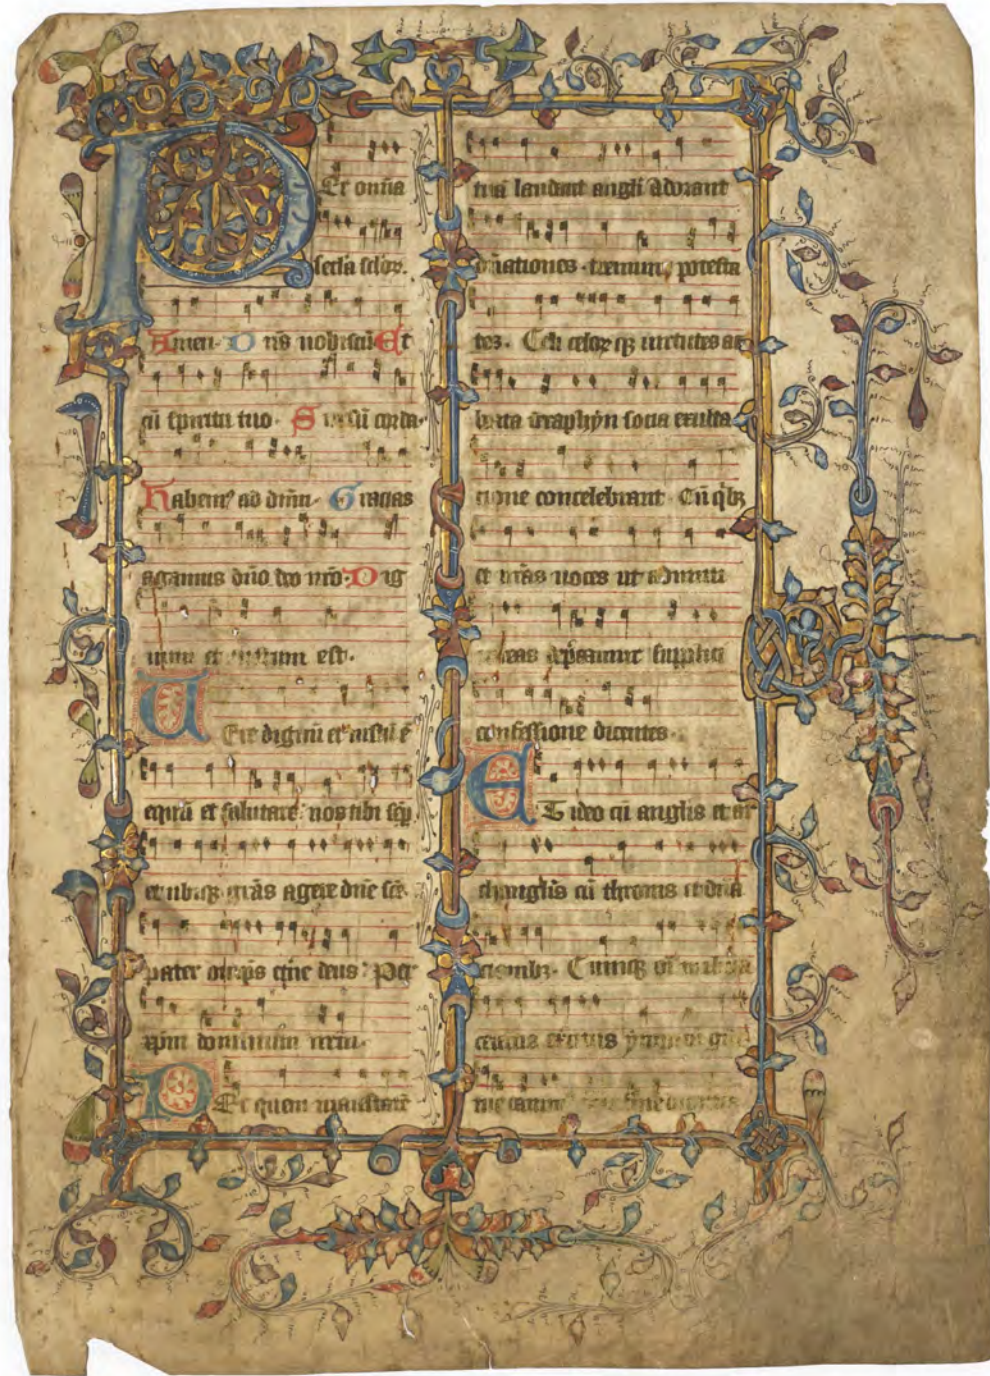 Per om̄ia
secl̄a sclor̄.
Amen. Dn̄s nobiscū Et
cū spiritu tuo. Sursū corda.
Habemꝰ ad dn̄m. Gracias
agamus dn̄o deo nr̄o. Dig
num et iustum est.
Vere dignū et iustū ē
equū et salutare: nos tibi sēp
et ubiqꝫ gr̄as agere dn̄e sc̄e
pater om̄ps et̄ne deus: Per
xp̄m dominum nr̄m.
Per quem maiestatē
tuā laudant angl̄i Adorant
dn̄ationes. tremunt potesta
tes. Celi celorꝫ qꝫ uirtutes ac
beata seraphyn socia exulta
tione concelebrant. Cū qͥbꝫ
et nr̄as uoces ut admitti
iubeas dep̄camur supplici
confessione dicentes.
Et ideo cū angl̄is et ar
changl̄is cū thronis et dn̄a
cionibꝫ. Cumqꝫ om̄i militia
celestis exercitus ympnū gl̄e
tue canimꝰ sine fine dicentes